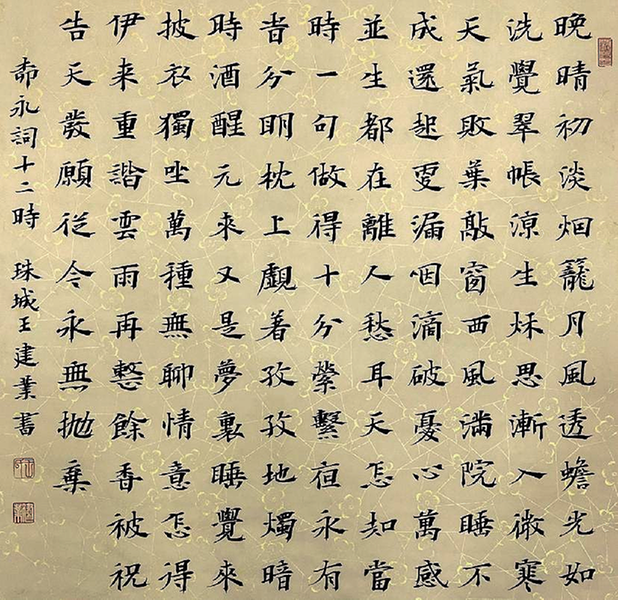 晚晴初淡烟籠月風透蟾光如
洗覺翠帳涼生秌思漸入微寒
天氣敗葉敲窗西風滿院睡不
成還起更漏咽滴破憂心萬感
並生都在離人愁耳天怎知當
時一句做得十分縈繫夜永有
旹分明枕上覷著孜孜地燭暗
時酒醒元來又是夢裏睡覺來
披衣獨坐萬種無聊情意怎得
伊来重諧雲雨再整餘香被祝
告天發願從今永無抛棄
柳永詞十二時 珠城王建業書